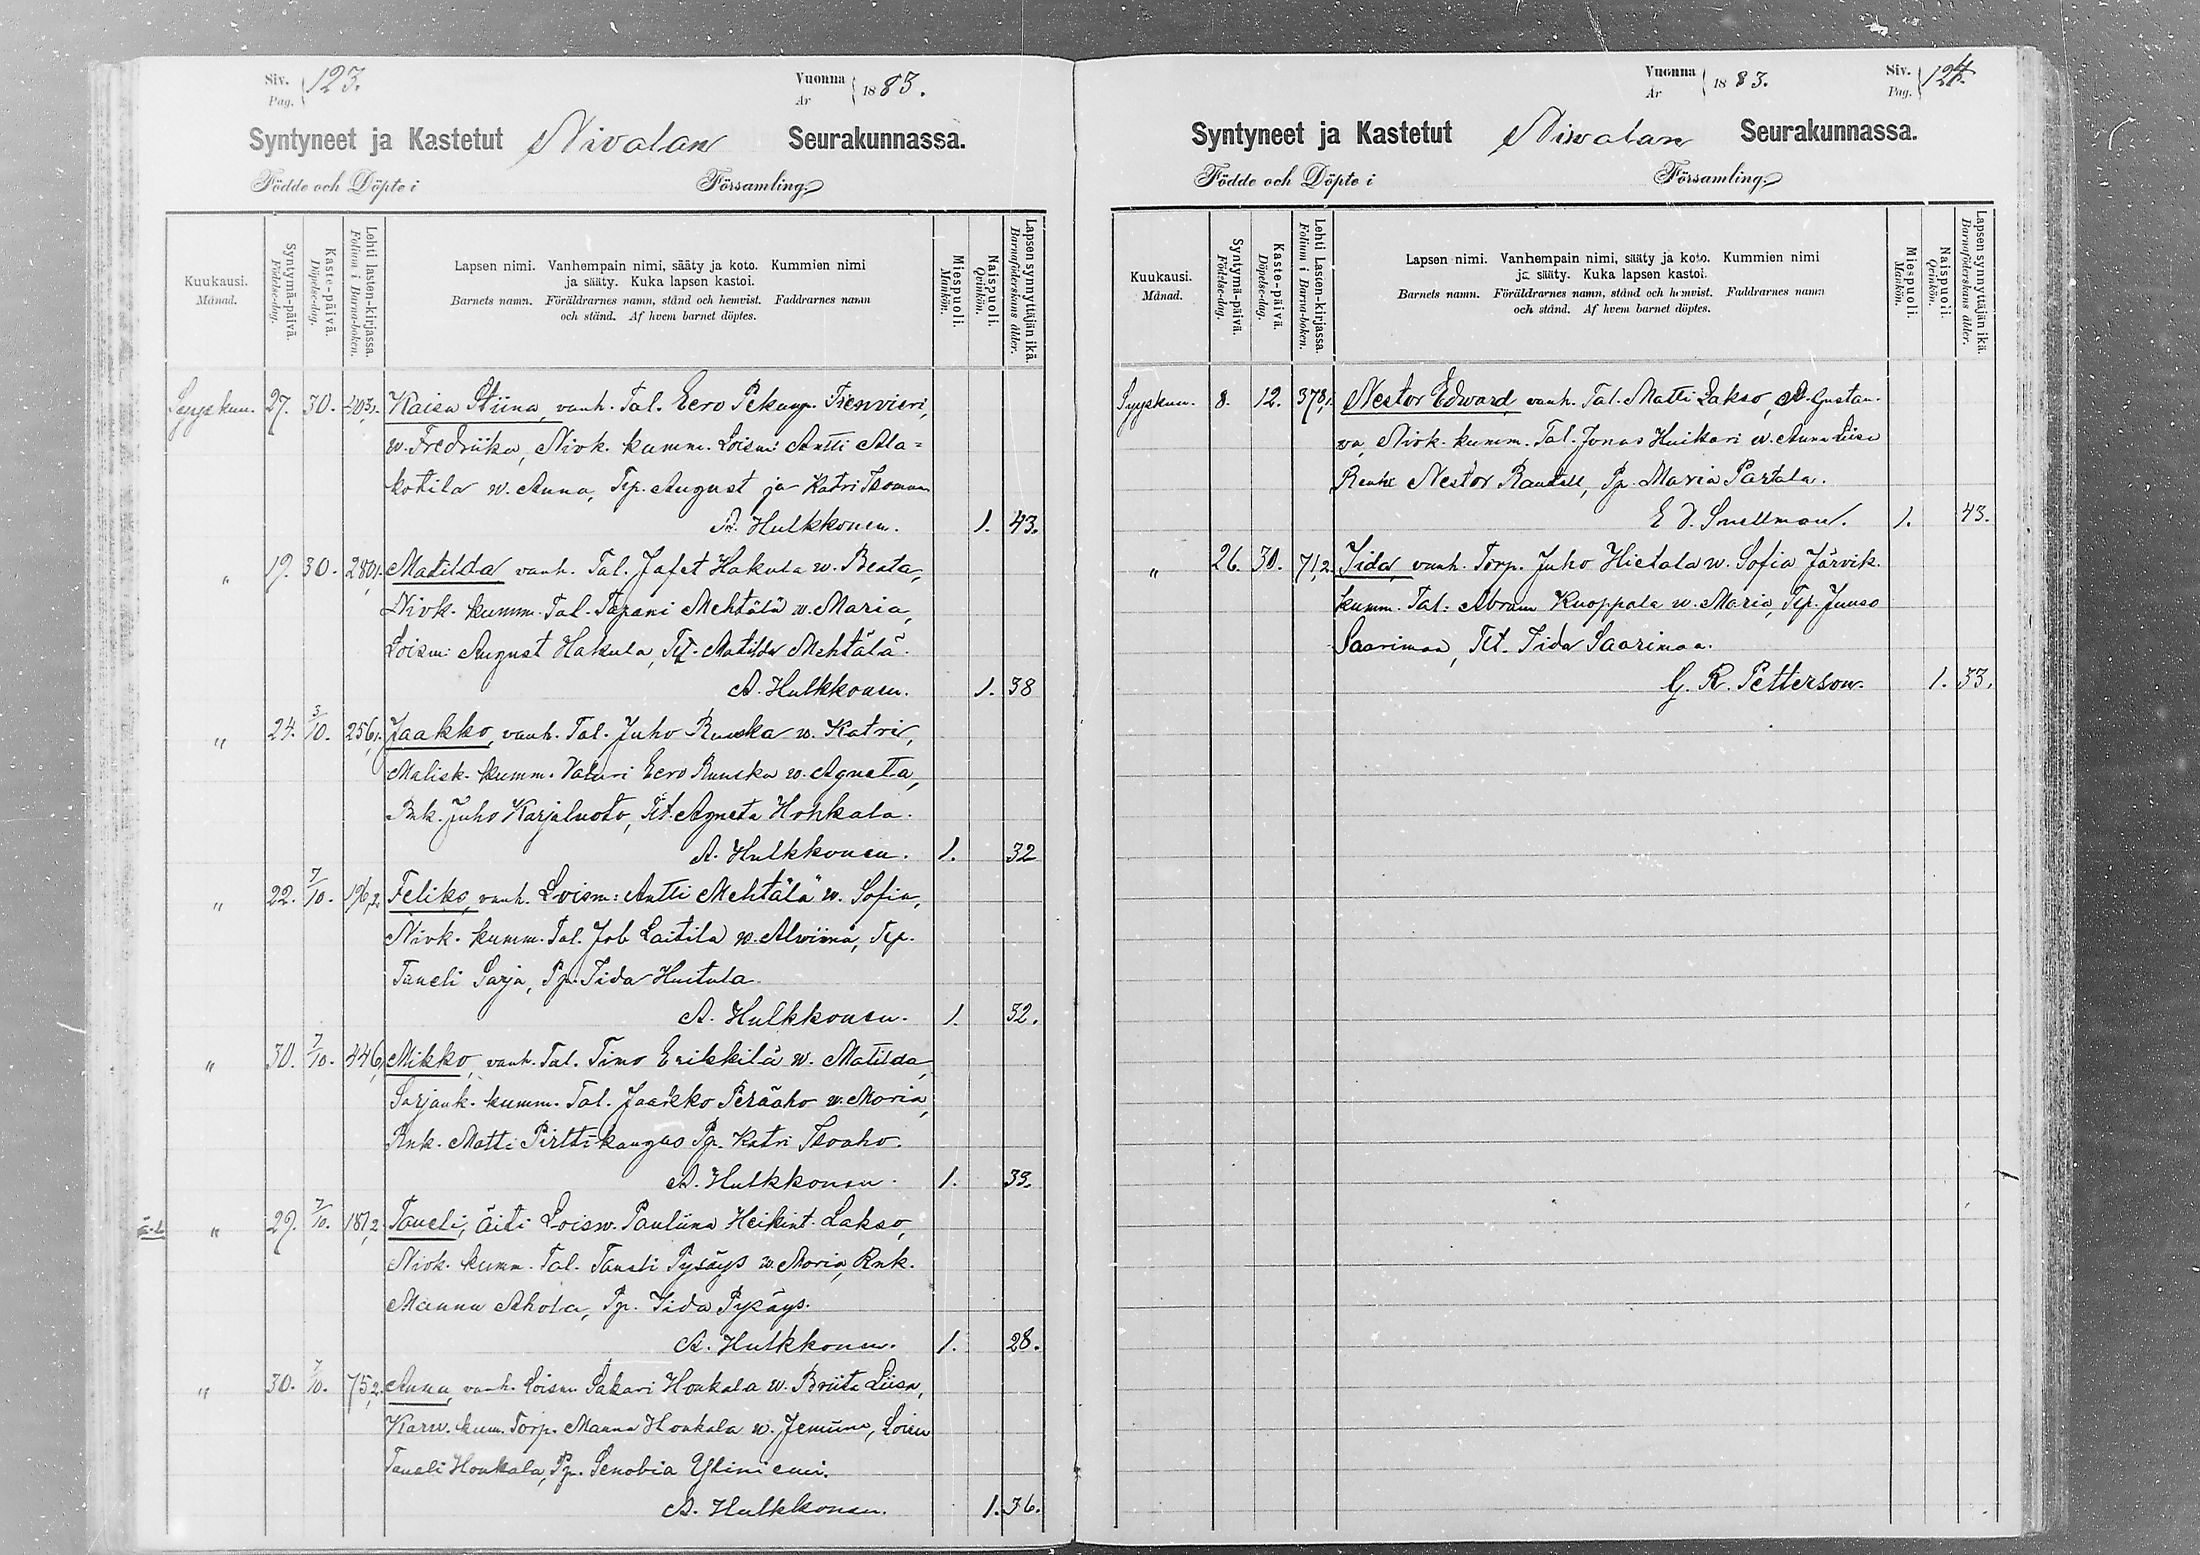 Siv. Pag. 123.
Vuonna År 1883.
Syntyneet ja Kastetut Nivalan Seurakunnassa.
Födde och Döpte i Församling.
Kuukausi. Månad.
Syntymä-päivä. Födelse-dag.
Kaste-päivä. Döpelse-dag.
Lehti lasten-kirjassa. Folium i Barna-boken.
Lapsen nimi. Vanhempain nimi, sääty ja koto. Kummien nimi
ja sääty. Kuka lapsen kastoi.
Barnets namn. Föräldrarnes namn, stånd och hemvist. Faddrarnes namn
och stånd. Af hvem barnet döptes.
Miespuoli. Mankön.
Naispuoli. Qvinkön.
Lapsen synnyttäjän ikä. Barnaföderskans ålder.
Syyskuu. 27. 30. 403,1. Kaisa Stiina, vanh. Tal. Eero Pekanp. Tienvieri,
w. Fredriika, Nivk. kumm. Loism: Antti Ala=
kotila w. Anna, Trp. August ja Katri
A. Hulkkonen. 1. 43.
" 19. 30. 280,1. Matilda vanh. Tal. Jafet Hakula w. Beata,
Nivk. kumm. Tal. Tapani Mehtälä w. Maria,
Loism: August Hakula, Tt. Matilda Mehtälä.
A. Hulkkonen. 1. 38
" 24. 3/10. 256,1. Jaakko, vanh. Tal. Juho Ruuska w. Katri,
Malisk. kumm. Valuri Eero Ruuska w. Agneta,
Rnk. Juho Karjaluoto, Tt. Agneta Honkala.
A. Hulkkonen. 1. 32
" 22. 7/10. 196,2. Feliks, vanh. Loism: Antti Mehtälä w. Sofia,
Nivk. kumm. Tal. Job Laitila w. Alwiina, Trp.
Taneli Sarja, Pp. Iida
A. Hulkkonen. 1. 32.
" 30. 7/10. 446, Mikko, vanh. Tal. Timo Erikkilä w. Matilda,
Sarjank. kumm. Tal. Jaakko Peräaho w. Maria,
Rnk. Matti Pirttikangas Pp. Katri Isoaho.
A. Hulkkonen. 1. 33.
" 29. 7/10. 187,2 Taneli, äiti Loisw. Pauliina Heikint. Lakso,
Nivk. kumm. Tal. Taneli Pysäys w. Maria, Rnk.
Mannu Ahola, Pp. Iida Pysäys.
A. Hulkkonen. 1. 28.
" 30. 7/10. 75,2. Anna, vanh. Loism. Sakari Honkala w. Briita Liisa,
Karw. kum. Torp. Mannu Honkala w. Jemiina, Loism
Taneli Honkala, Pp. Senobia Yliniemi.
A. Hulkkonen. 1. 36.
Vuonna År 1883.
Siv. Pag. 124.
Syntyneet ja Kastetut Niwalan Seurakunnassa.
Födde och Döpte i Församling.
Kuukausi. Månad.
Syntymä-päivä. Födelse-dag.
Kaste-päivä. Döpelse-dag.
Lehti Lasten-kirjassa. Folium i Barna-boken.
Lapsen nimi. Vanhempain nimi, sääty ja koto. Kummien nimi
ja sääty. Kuka lapsen kastoi.
Barnets namn. Föräldrarnes namn, stånd och hemvist. Faddrarnes namn
och stånd. Af hvem barnet döptes.
Miespuoli. Mankön.
Naispuoli. Qvinkön.
Lapsen synnyttäjän ikä. Barnaföderskans ålder.
Syyskuu. 8. 12. 378,1. Nestor Edward, vanh. Tal. Matti Lakso, w. Gustaa-
va, Nivk. kumm. Tal. Jonas Huikari w. Anna Liisa
Nestor Rautell, Pp. Maria Partala.
E D. Snellman. 1. 43.
" 26. 30. 71,2. Iida, vanh. Torp. Juho Hietala w. Sofia Järvik.
kumm. Tal: Abram Kuoppala w. Maria, Trp. Juuso
Saarimaa, Tt. Iida Saarimaa.
G. R. Petterson. 1. 33.